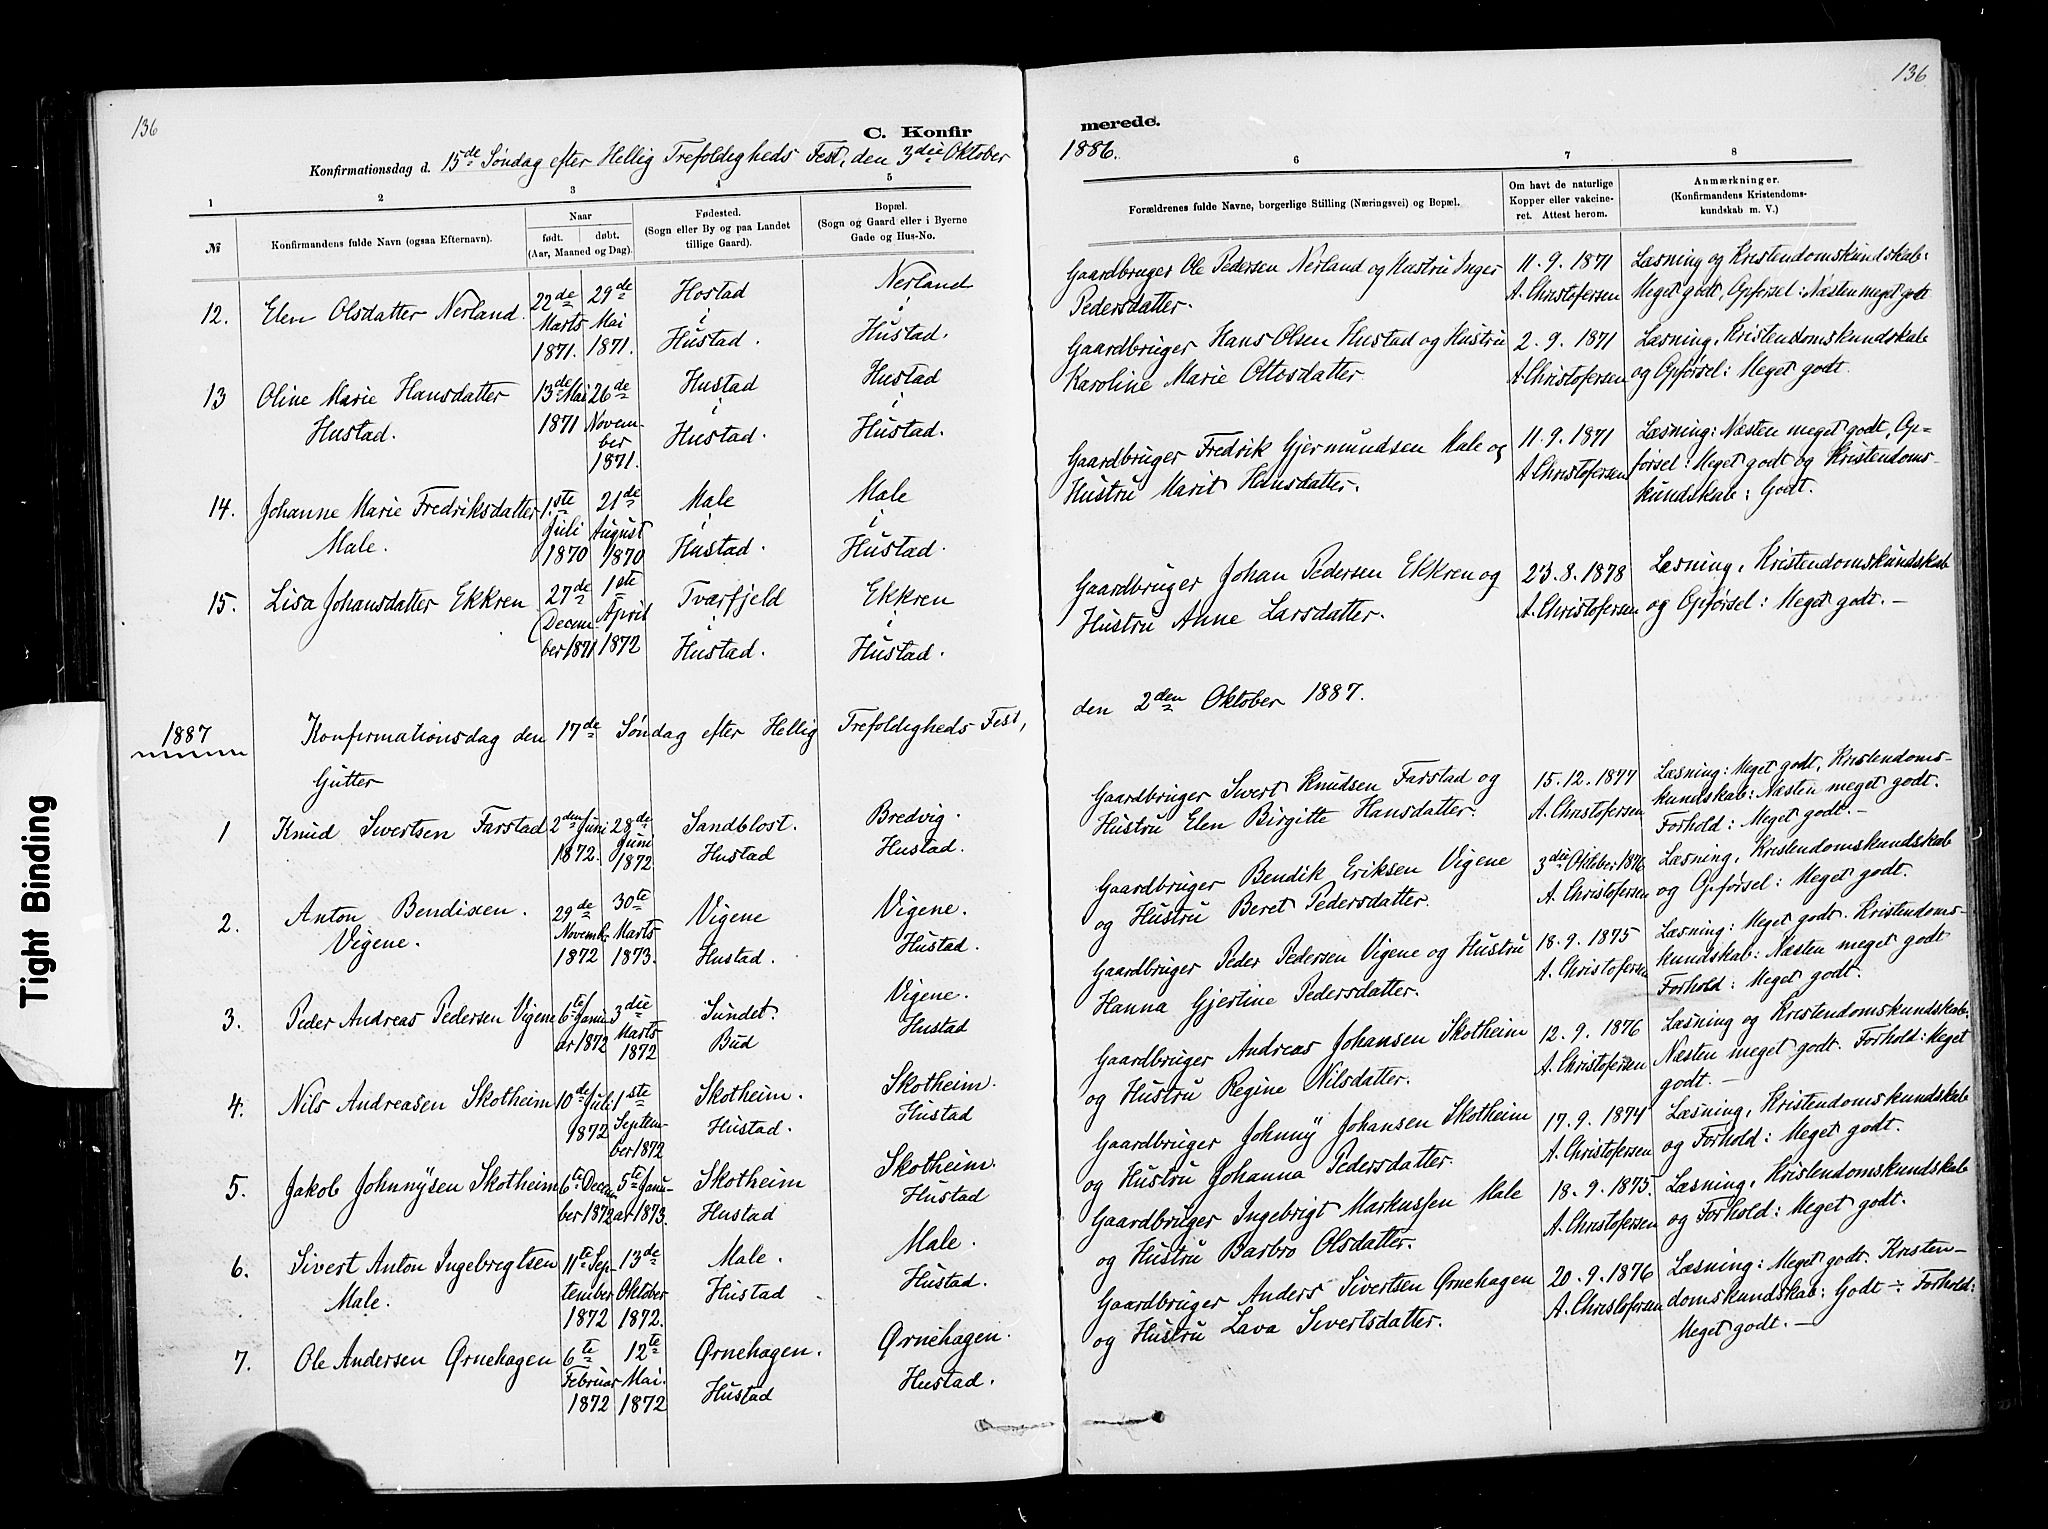 136
C. Konfir
Konfirmationsdag d. 15de Søndag efter Hellig Trefoldigheds Fest, den 3die Oktober
1 2 3 4 5
№
Konfirmandens fulde Navn (ogsaa Efternavn).
Naar
født. døbt.
(Aar, Maaned og Dag).
Fødested.
(Sogn eller By og paa Landet
tillige Gaard).
Bopæl.
(Sogn og Gaard eller i Byerne
Gade og Hus-No.
12. Elen Olsdatter Nerland. 22de Marts 1871. 29de Mai 1871. Hostad i Hustad. Nerland i Hustad.
13 Oline Marie Hansdatter Hustad. 13de Mai 1871 26de November 1871. Hustad i Hustad. Hustad i Hustad.
14. Johanne Marie Fredriksdatter Male. 1.ste Juli 1870 21de August 1870 Male i Hustad. Male i Hustad.
15. Lisa Johansdatter Ekkren 27de December 1871 1ste April 1872 Tverfjeld i Hustad. Ekkren i Hustad.
1887 Konfirmationsdag den 17de Søndag efter Hellig Trefoldigheds Fest,
Gutter
1 Knud Sivertsen Farstad 2den Juni 1872. 28de Juni 1872. Sandblost. Hustad Bredvig. Hustad.
2. Anton Bendixen. Vigene. 29de Novemb. 1872 30te Marts 1873. Vigene Hustad. Vigene. Hustad.
3. Peder Andreas Pedersen Vigene 6te Januar 1872 3die Marts 1872 Sundet. Bud Vigene. Hustad
4. Nils Andreasen Skotheim 10de Juli 1872 1ste September 1872 Skotheim. Hustad. Skotheim. Hustad
5. Jakob Johnnÿsen Skotheim 6te December 1872 5te Januar 1873. Skotheim Hustad Skotheim. Hustad
6. Sivert Anton Ingebregtsen Male. 11te September 1872 13de Oktober 1872. Male. Hustad Male. Hustad.
7. Ole Andersen Ørnehagen 6te Februar 1872 12te Mai. 1872 Ørnehagen. Hustad Ørnehagen. Hustad.
136
merede.
1886.
6 7 8
Forældrenes fulde Navne, borgerlige Stilling (Næringsvei) og Bopæl.
Om havt de naturlige
Kopper eller vakcine-
ret. Attest herom.
Anmærkninger.
(Konfirmandens Kristendoms-
kundskab m. V.)
Gaardbruger Ole Pedersen Nerland og Hustru Inger Pedersdatter. 11.9.1871 A. Christofersen Læsning og Kristendomskundskab: Meget godt, Opførsel: Næsten meget godt
Gaardbruger Hans Olsen Hustad og Hustru Karoline Marie Ottosdatter. 2.9.1871 A. Christofersen Læsning, Kristendomskundskab og Opførsel: Meget godt.
Gaardbruger Fredrik Gjermundsen Male og Hustru Marit Hansdatter. 11.9.1871 A Christofersen Læsning: Næsten meget godt, Opførsel: Meget godt og Kristendomskundskab: Godt.
Gaardbruger Johan Pedersen Ekkren og Hustru Anne Larsdatter. 23.8.1878 A. Christofersen Læsning, Kristendomskundskab og Opførsel: Meget godt. —
den 2den Oktober 1887.
Gaardbruger Sivert Knudsen Farstad og Hustru Elen Birgitte Hansdatter. 15.12.1877 A. Christofersen Læsning: Meget godt, Kristendomskundskab: Næsten meget godt. Forhold: Meget godt. —
Gaardbruger Bendik Eriksen Vigene og Hustru Beret Pedersdatter. 3die Oktober 1876 A. Christofersen Læsning, Kristendomskundskab og Opførsel: Meget godt.
Gaardbruger Peder Pedersen Vigene og Hustru Hanna Gjertine Pedersdatter. 18.9.1875 A. Christofersen Læsning: Meget godt. Kristendomskundskab: Næsten meget godt Forhold: Meget godt.
Gaardbruger Andreas Johansen Skotheim og Hustru Regine Nilsdatter. 12.9.1876 A. Christofersen Læsning og Kristendomskundskab: Næsten meget godt. Forhold: Meget godt. —
Gaardbruger Johnnÿ Johansen Skotheim og Hustru Johanna Pedersdatter. 17.9.1874 A. Christofersen Læsning, Kristendomskundskab og Forhold: Meget godt.
Gaardbruger Ingebrigt Markussen Male og Hustru Barbro Olsdatter. 18.9.1875. A. Christofersen Læsning, Kristendomskundskab og Forhold: Meget godt.
Gaardbruger Anders Sivertsen Ørnehagen og Hustru Lava Sivertsdatter. 20.9.1876 A. Christofersen Læsning: Meget godt. Kristendomskundskab: Godt ÷ Forhold: Meget godt. —
Tight Binding